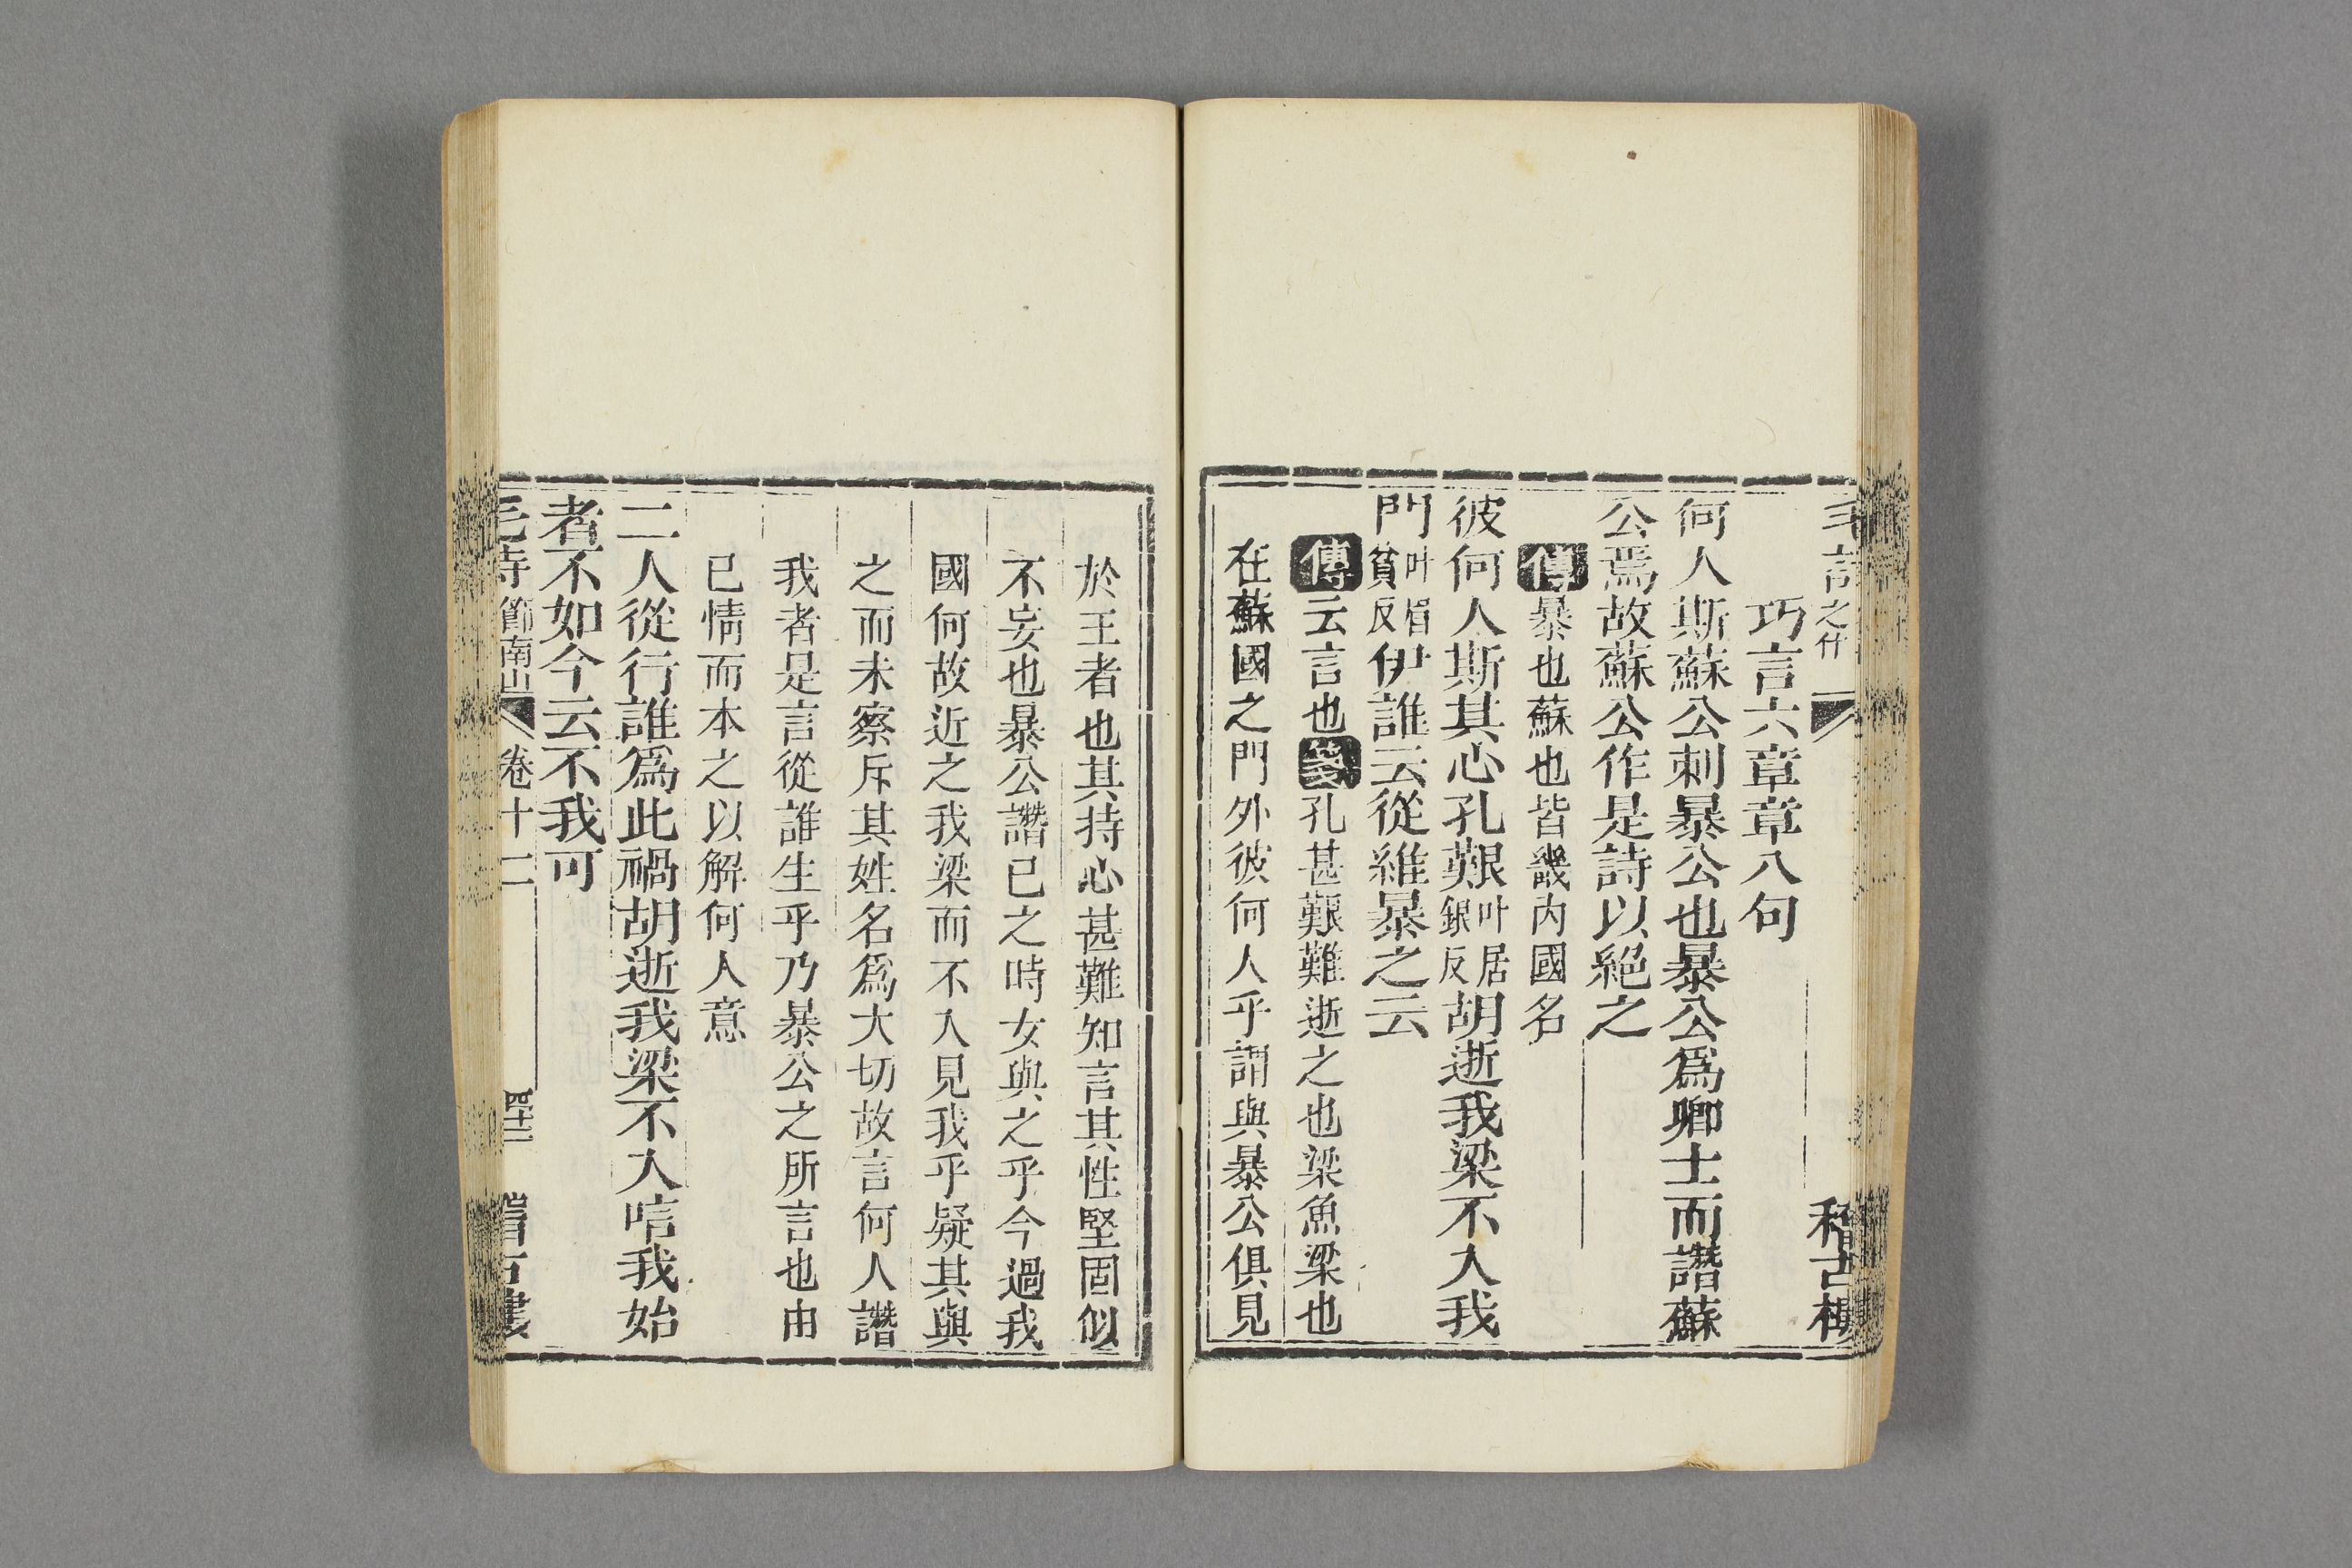 毛詩之什 稽古樓
巧言六章章八句
何人斯蘇公刺暴公也暴公爲卿士而譖蘇
公焉故蘇公作是詩以絕之
傳暴也蘇也皆畿内國名
彼何人斯其心孔艱叶居銀反胡逝我梁不入我
門叶眉貧反伊誰云從維暴之云
傳云言也箋孔甚艱難逝之也梁魚梁也
在蘇國之門外彼何人乎謂與暴公俱見
於王者也其持心甚難知言其性堅固似
不妄也暴公譖已之時女與之乎今過我
國何故近之我梁而不入見我乎疑其與
之而未察斥其姓名爲大切故言何人譖
我者是言從誰生乎乃暴公之所言也由
已情而本之以解何人意
二人從行誰爲此禍胡逝我梁不入唁我始
者不如今云不我可
節南山 卷十二